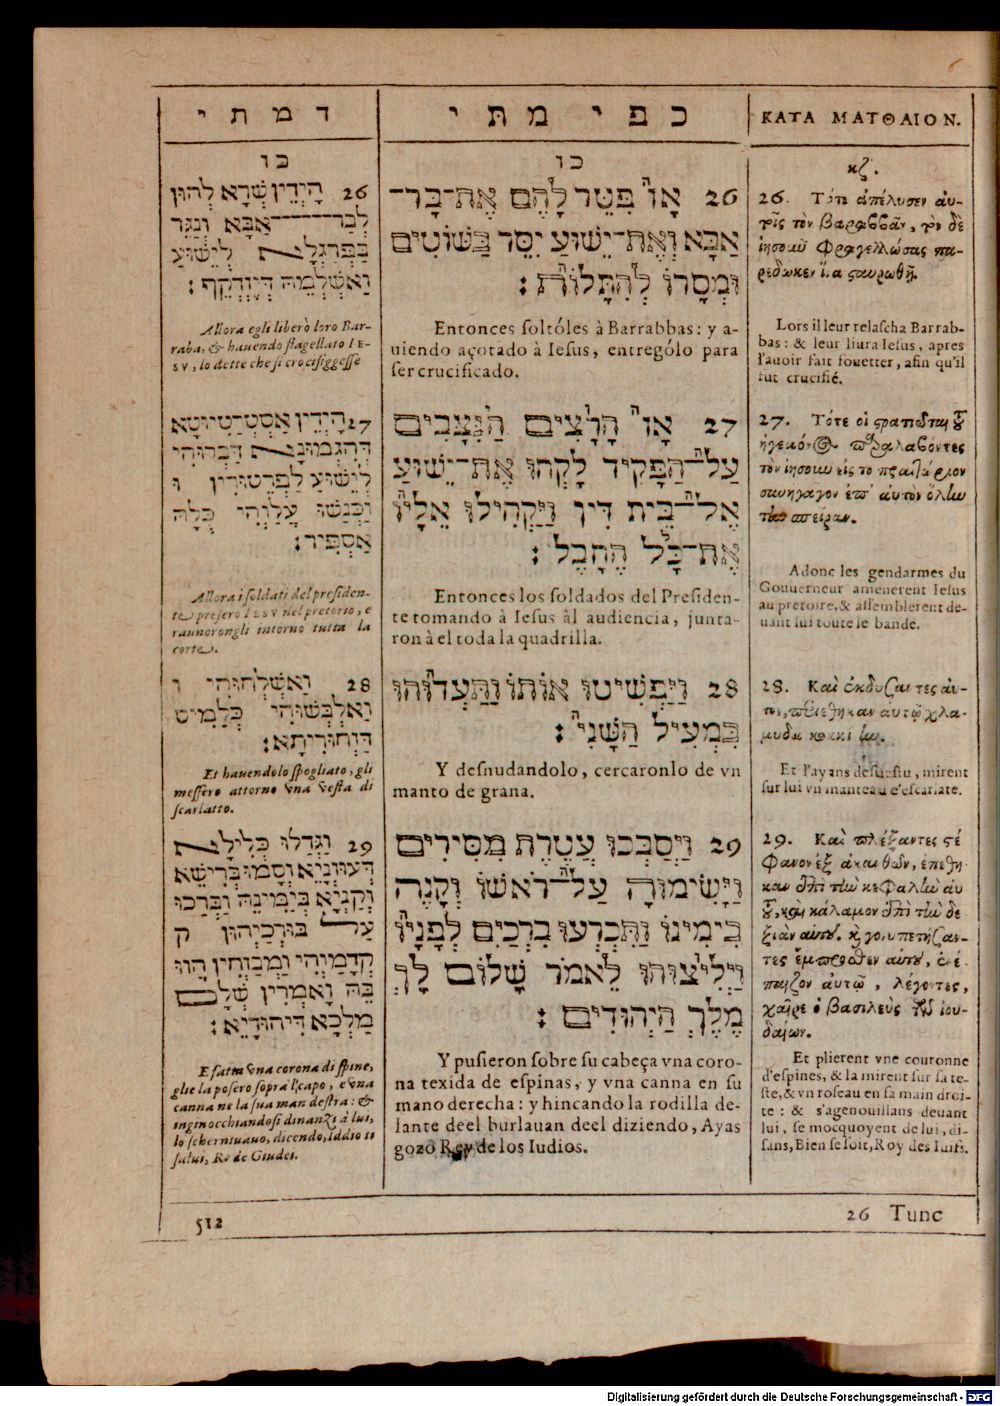 ד מ ת י
כו
26 הָידֵין שְׁרָא לְהוּן
לְבַר־אַבָּא וְנַגֵּד
בַּפְרַגְלָא לְיֵשׁוּעַ
וַאשְׁלְמֵהּ דְּיִזְדְּקֵף :
Allora egli liberò loro Bar-
raba, & hauendo flagellato IE-
SV, lo dette che si crocifiggesse
27 הָידֵין אִסְטְרַטִיוּטָא
דְּהִגְמוּנָא דַּבְרוּהי
לְיֵשׁוּעַ לַפְּרֵטוֹרִין ו
וַכְנַשׁוּ עֲלַוְהי כֻּלָּהּ
אַסְפִּיר :
Allora i soldati del presiden-
te presero IESV nel pretorio, e
raunorongli intorno tutta la
corte.
28 וַאשְׁלְחוּהי ו
וַאלְבְּשׁוּהי כְּלָמִיס
דַּזְחוֹרִיתָא :
Et hauendolo spogliato, gli
messero attorno vna vesta di
scarlatto.
29 וַגְדַלוּ כְּלִילָא
דְּעוּבָּיֵא וְסָמוּ בְּרִישֵׁהּ
וְקַנְיָא בְּיַמִּינֵהּ וַבְרַכוּ
עַל בּוּרְכַּיְהוּן ק
קְדָמַוְהי וַמְבַזְּחִין הֲווֹ
בֵּהּ וָאמְרִין שְׁלָם
מַלְכָּא דִּיהוּדָיֵא :
E fatta vna corona di spine,
glie la posero sopra'l capo, e vna
canna ne la sua man destra: &
inginocchiandosi dinanzi a lui,
lo schernivano, dicendo, Iddio ti
salui, Re de Giudei.
כ פ י מ ת י
כו
26 אָז פִּטֵּר לָהֶם אֶת־בַּר־
אַבָּא וְאֶת־יֵשׁוּעַ יִסֵּר בַּשּׁוֹטִים
וּמְסָרוֹ לְהִתָּלוֹת :
Entonces soltóles à Barrabbas: y a-
uiendo açotado à Iesus, entrególo para
ser crucificado.
27 אָז הָרָצִים הַנִּצָּבִים
עַל־הַפָּקִיד לָקְחוּ אֶת־יֵשׁוּעַ
אֶל־בֵּית דִּין וַיַּקְהִילוּ אֵלָיו
אֶת־כָּל הַחֶבֶל :
Entonces los soldados del Presiden-
te tomando à Iesus àl audiencia, junta-
ron à el toda la quadrilla.
28 וַיַּפְשִׁיטוּ אוֹתוֹ וַתַּעְדּוּהוּ
בִּמְעִיל הַשָּׁנִי :
Y desnudandolo, cercaronlo de vn
manto de grana.
29 וַיְסַבְּכוּ עֲטֶרֶת מִסִּירִים
וַיָּשִׂימוּהָ עַל־רֹאשׁוֹ וְקָנֶה
בִּימִינוֹ וַתִּכְרְעוּ בִרְכַּיִם לְפָנָיו
וַיְלִיצוּהוּ לֵאמֹר שָׁלוֹם לָךְ
מֶלֶךְ הַיְּהוּדִים :
Y pusieron sobre su cabeça vna coro-
na texida de espinas, y vna canna en su
mano derecha: y hincando la rodilla de-
lante deel burlauan deel diziendo, Ayas
gozo Rey de los Iudios.
ΚΑΤΑ ΜΑΤΘΑΙΟΝ.
κζ.
26. Τότε ἀπέλυσεν αὐ-
τοῖς τὸν Βαραββᾶν, τὸν δὲ
ἰησοῦν φραγελλώσας πα-
ρέδωκεν ἵνα σταυρωθῇ.
Lors il leur relascha Barrab-
bas: & leur liura Iesus, apres
l'auoir fait fouetter, afin qu'il
fut crucifié.
27. Τότε οἱ στρατιῶται τοῦ
ἡγεμόνος παραλαβόντες
τὸν ἰησοῦν εἰς τὸ πραιτώριον
συνήγαγον ἐπ' αὐτὸν ὅλην
τὴν σπεῖραν.
Adonc les gendarmes du
Gouuerneur amenerent Iesus
au pretoire, & assemblerent de-
uant lui toute le bande.
28. Καὶ ἐκδύσαντες αὐ-
τὸν, περιέθηκαν αὐτῷ χλα-
μύδα κοκκίνην.
Et l'ayans desuestu, mirent
sur lui vn manteau d'escarlate.
29. Καὶ πλέξαντες στέ
φανον ἐξ ἀκανθῶν, ἐπέθη
καν ἐπὶ τὴν κεφαλὴν αὐ
τοῦ, καὶ κάλαμον ἐπὶ τὴν δε
ξιὰν αὐτοῦ. καὶ γονυπετήσαν-
τες ἔμπροσθεν αὐτοῦ, ἐνέ
παιζον αὐτῷ, λέγοντες,
χαῖρε ὁ βασιλεὺς τῶν ἰου-
δαίων.
Et plierent vne couronne
d'espines, & la mirent sur sa te-
ste, & vn roseau en sa main droi-
te: & s'agenouillans deuant
lui, se mocquoyent de lui, di-
sans, Bien se soit, Roy des Iuifs.
512
26 Tunc
Digitalisierung gefördert durch die Deutsche Forschungsgemeinschaft - DFG